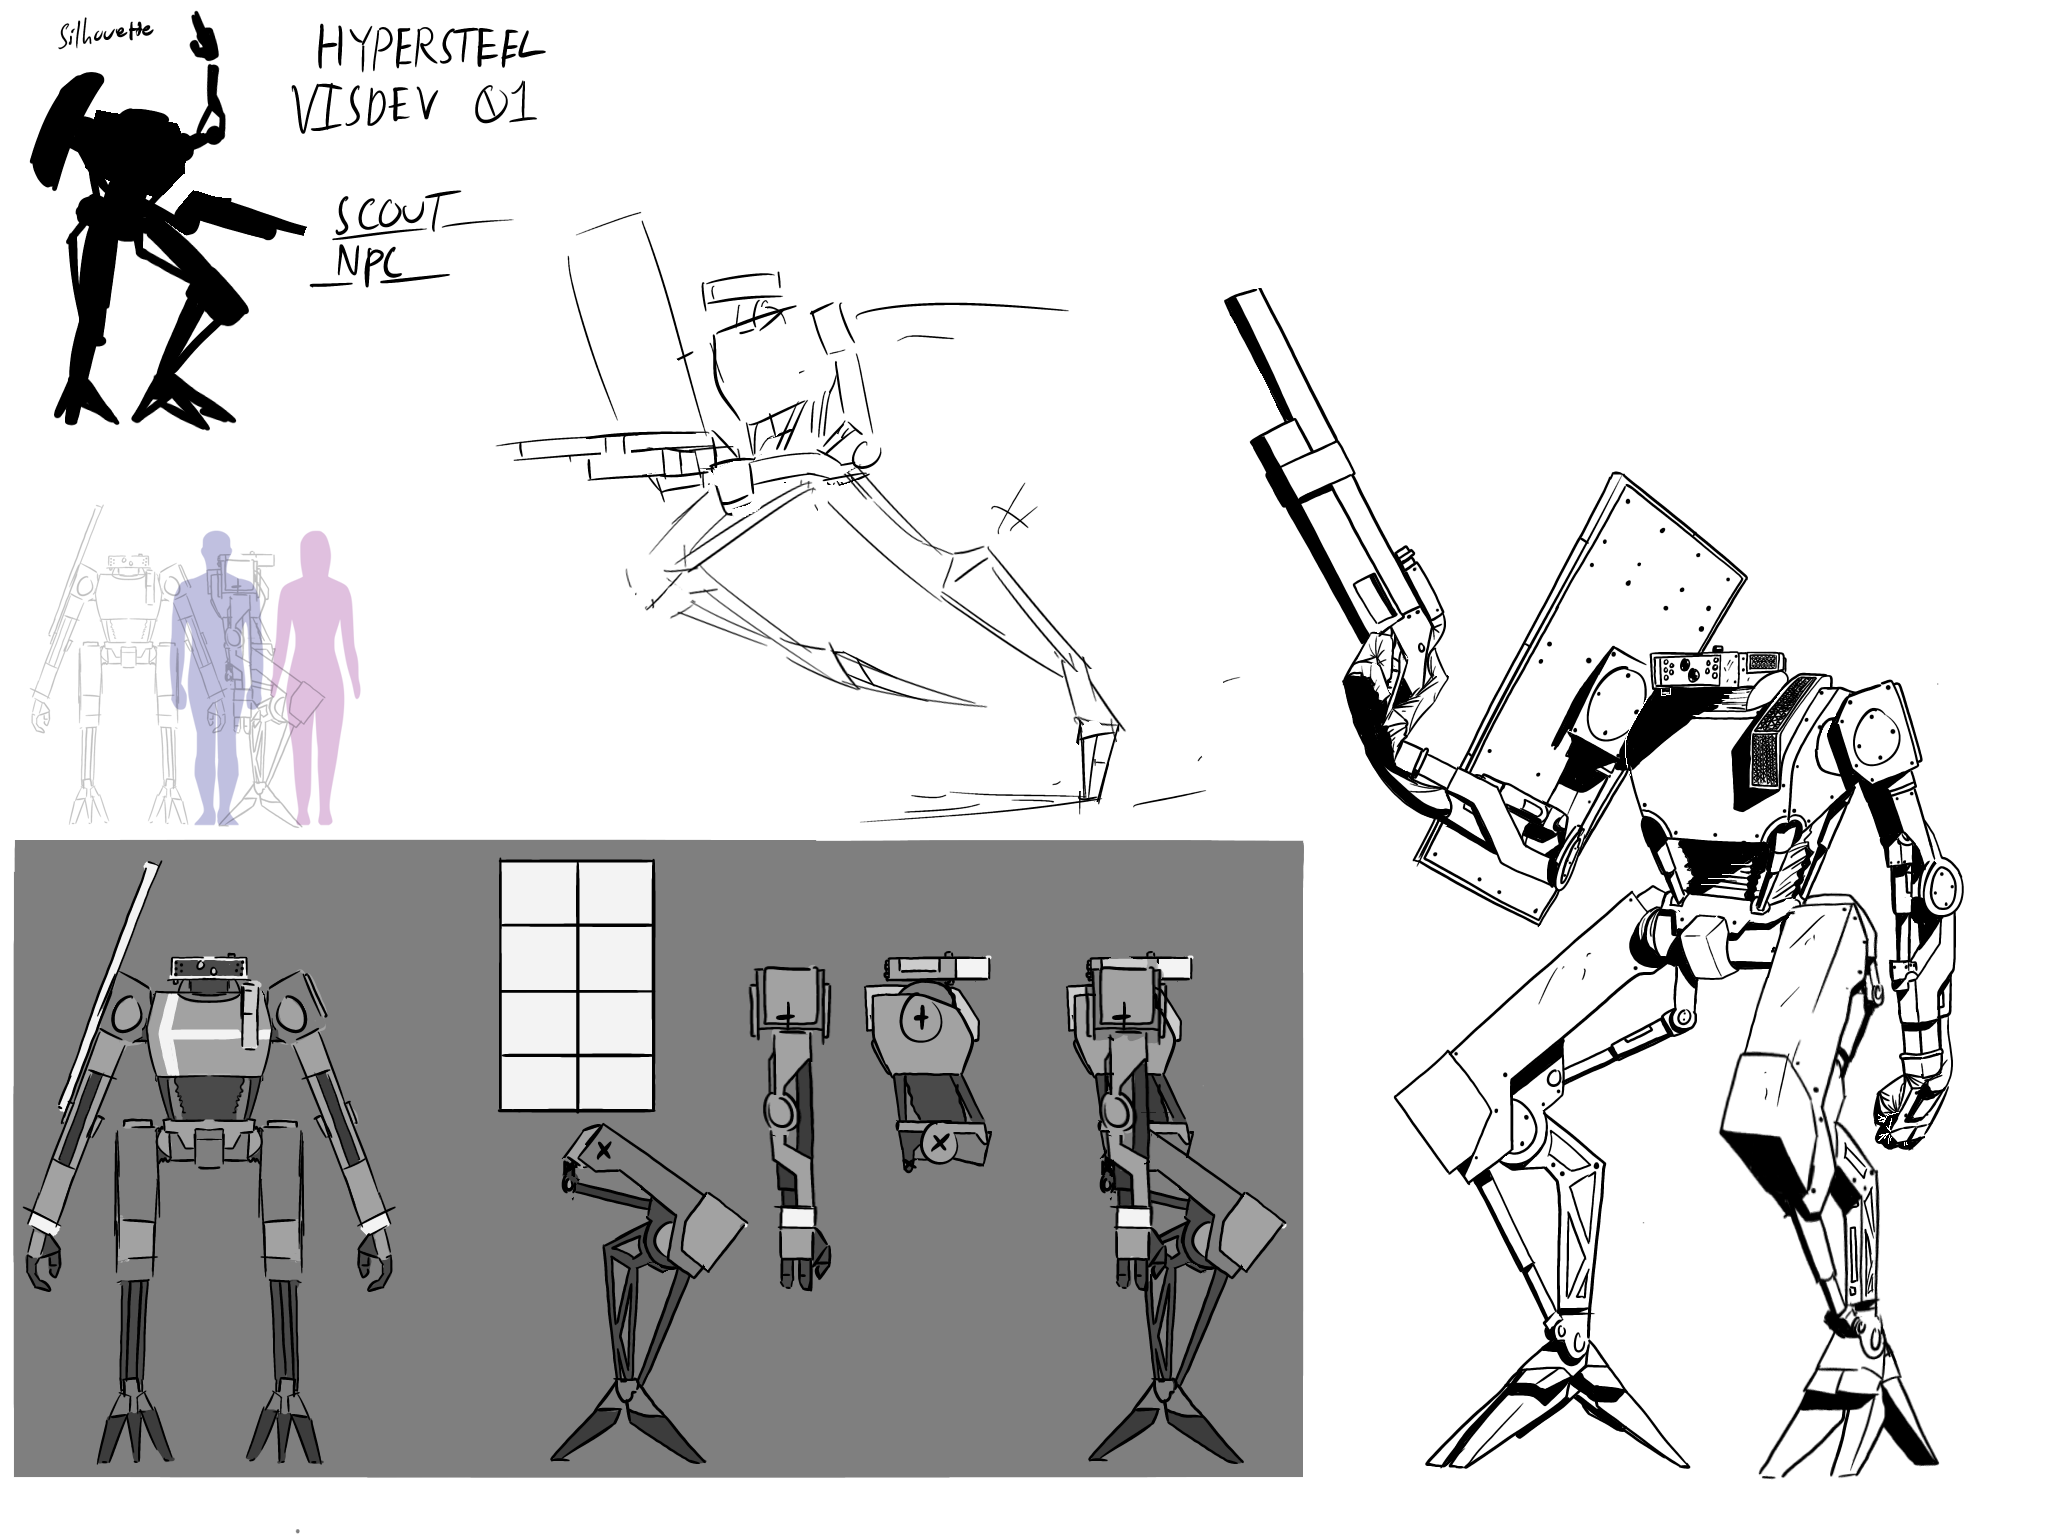 Silhouette
HYPERSTEEL
VISDEV 01
SCOUT
NPC